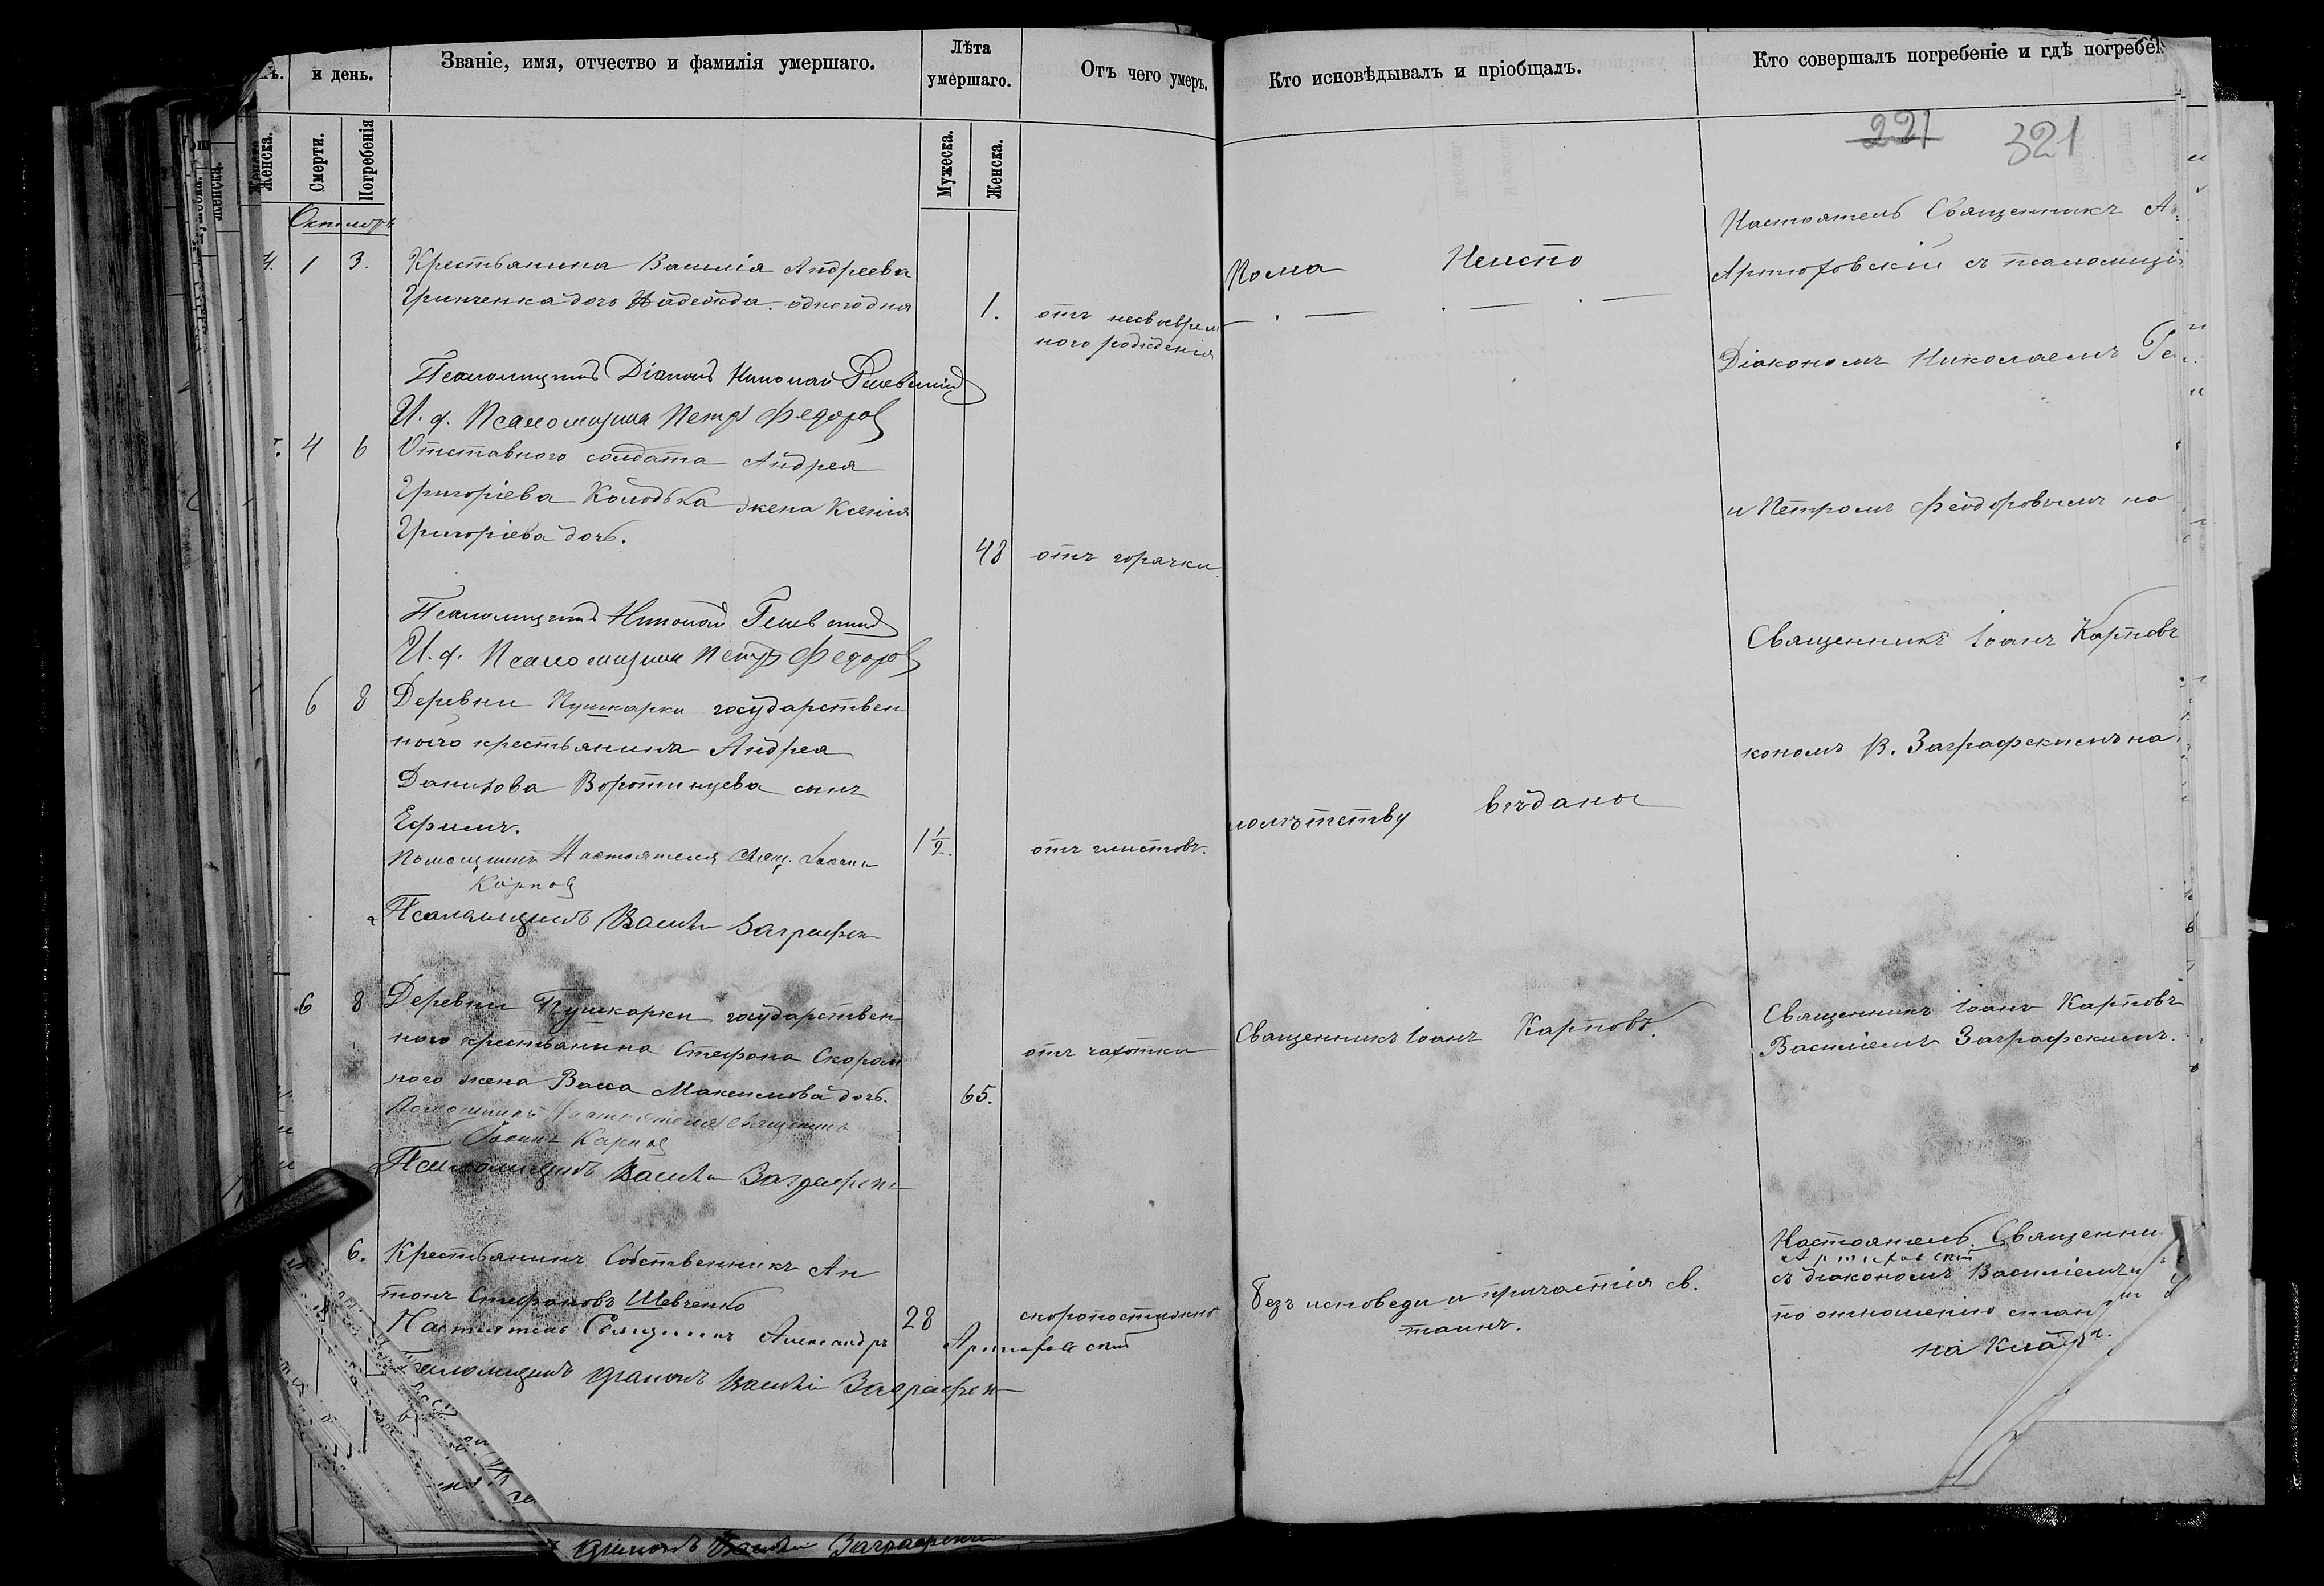 и день.
Званіе, имя, отчество и фамилія умершаго.
Лѣта
умершаго.
Отъ чего умеръ.
Женска.
Смерти.
Погребенія
Мужеска.
Женска.
Октябрь
4. 1 3. Крестьянина Василія Андреева
Гринченка дочь Надежда. однογодня 1. отъ несвоеврем
ного рожденія
Псаломщикъ Діаконъ Николай
И. д. Псаломщика Петръ Федоровъ
4 6 Отставного солдата Андрея
Григоріева Колодька жена Ксенія
Григоріева дочь. 48 отъ горячки
Псаломщикъ Николай
И. д. Псаломщика Петръ Федоровъ
6 8 Деревни Пушкарки государствен
ного крестьянина Андрея
Данилова Воротинцева сынъ
Ефимъ. 1½. отъ глистовъ.
Помощникъ Настоятеля Свящ. Іоаннъ
Карповъ
Псаломщикъ Василій Заграфск
6 8 Деревни Пушкарки государствен
ного крестьянина Стефана Скором
ного жена Васса Максимова дочь. 65. отъ чахотки
Помощникъ Настоятеля Священникъ
Іоаннъ Карповъ
Псаломщикъ Василій Заграфск
6. Крестьянинъ Собственникъ Ан
тонъ Стефановъ Шевченко 28 скоропостижно
Настоятель Священникъ Александръ Артюховскій
Псаломщикъ Діаконъ Василій Заграфск
Діаконъ Василій Заграфск
Кто исповѣдывалъ и пріобщалъ.
Кто совершалъ погребеніе и гдѣ погребе
221 321
Пома Неиспо
лолѣтству вѣданы
Священникъ Іоанъ Карповъ.
Безъ исповеди и причастія св.
таинъ.
Настоятель Священникъ А
Артюховскій съ псаломщи
Діакономъ Николаемъ Ге
и Петромъ Феодоровымъ на
Священникъ Іоанъ Карповъ
кономъ В. Заграфскимъ на
Священникъ Іоанъ Карповъ
Василіемъ Заграфскимъ.
Настоятель Священни
Артюховскій
съ діакономъ Василіемъ
по отношенію стан
на Клад